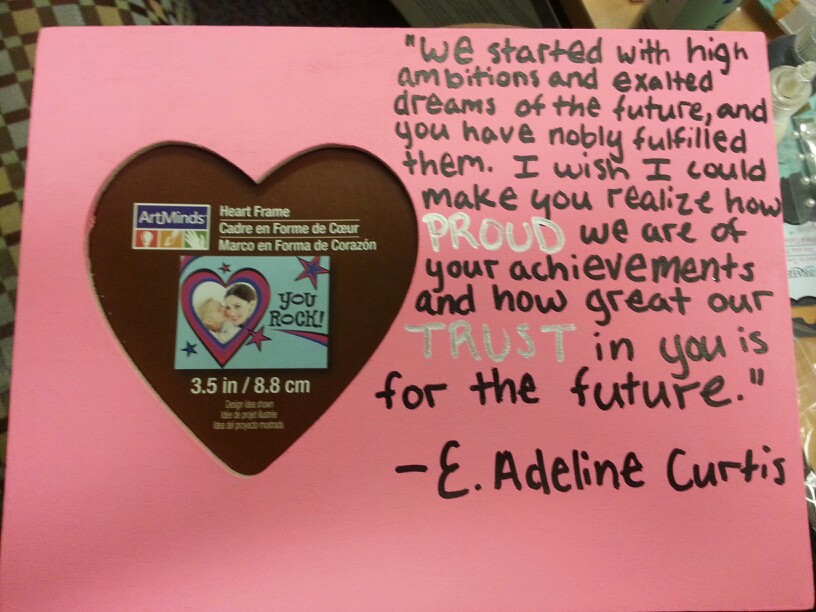 "We started with high
ambitions and exalted
dreams of the future, and
you have nobly fulfilled
them. I wish I could
make you realize how
PROUD we are of
your achievements
and how great our
TRUST in you is
for the future."
-E. Adeline Curtis
ArtMinds
Heart Frame
Cadre en Forme de Cœur
Marco en Forma de Corazón
YOU
ROCK!
3.5 in / 8.8 cm
Design idea shown
Idée de projet illustrée
Idea del proyecto mostrada